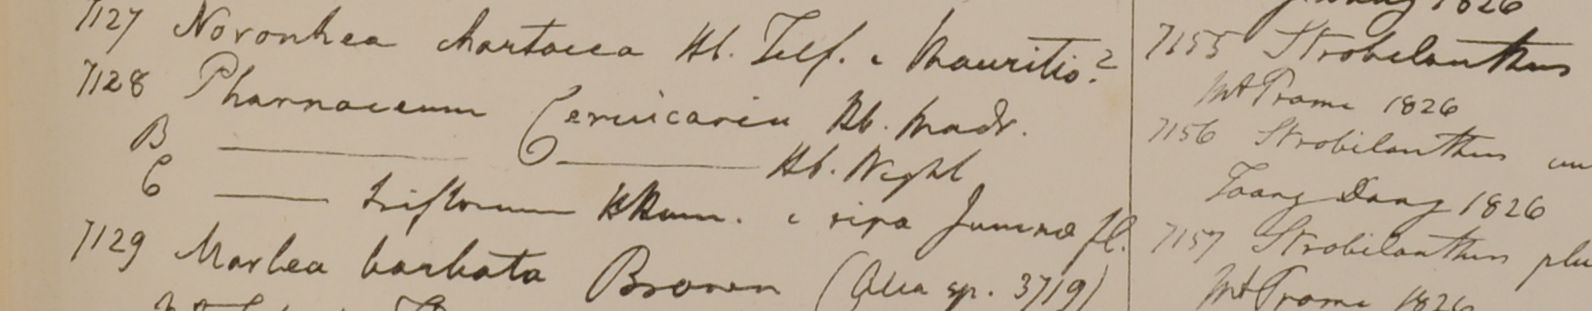 7127 Noronhea chartacea Hb. Telf. e Mauritio?
7128 Pharnaceum Cerviearia Hb. Madr.
B ——— Hb. Wight
C —— triflorum e ripa Jumnae fl.
7129 Marlea barbata Brown (Alia sp. 3719)
1826
7155 Strobilanthus
Mt Prome 1826
7156 Strobilanthus
Taong Dong 1826
7157 Strobilanthus plu
Mt Prome 1826